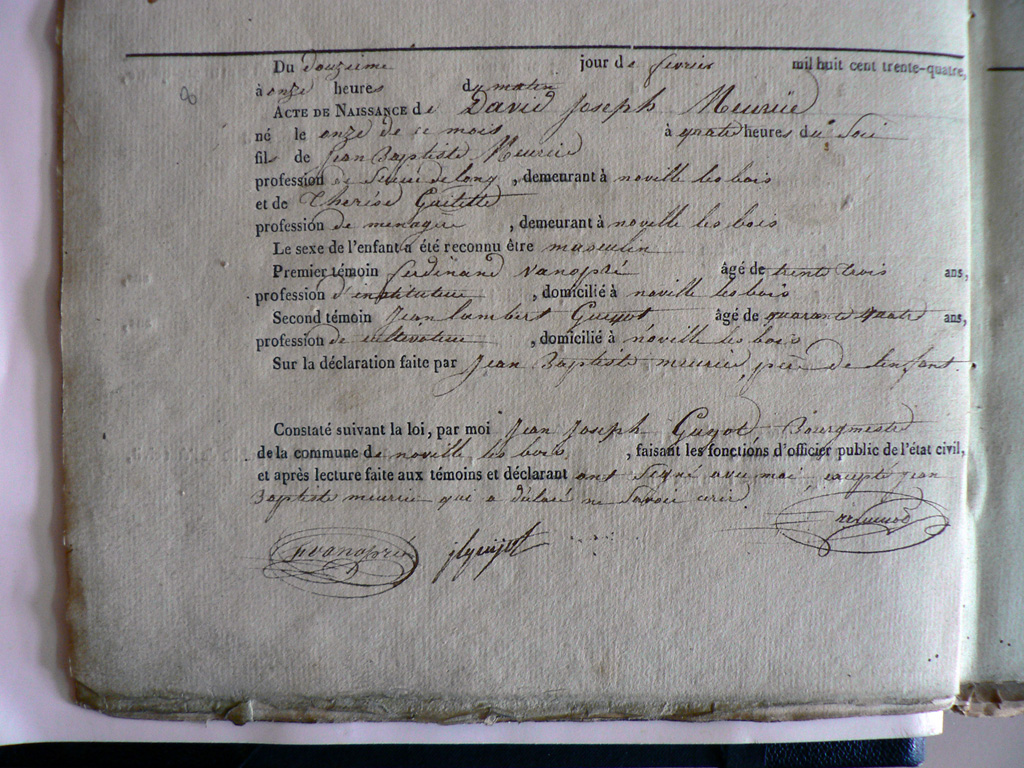 Du douzieme jour de fevrier mil huit cent trente-quatre,
8
à onze heures du matin
ACTE DE NAISSANCE de David Joseph Meurice
né le onze de ce mois à quatre heures du Soir
fils de Jean Baptiste Meurice
profession de Scieur de long, demeurant à noville les bois
et de Thérèse
profession de menagere, demeurant à noville les bois
Le sexe de l'enfant a été reconnu être masculin
Premier témoin Ferdinand Vanopré âgé de trente trois ans,
profession d'instituteur, domicilié à noville les bois
Second témoin Jean Lambert Guyot âgé de quarante quatre ans,
profession de cultivateur, domicilié à noville les bois
Sur la déclaration faite par Jean Baptiste meurice, père de l'enfant.
Constaté suivant la loi, par moi Jean Joseph Guyot Bourgmestre
de la commune de noville les bois, faisant les fonctions d'officier public de l'état civil,
et après lecture faite aux témoins et déclarant ont signé avec moi, excepté jean
Baptiste meurice qui a déclaré ne savoir ecrire
fvanopré jlguyot